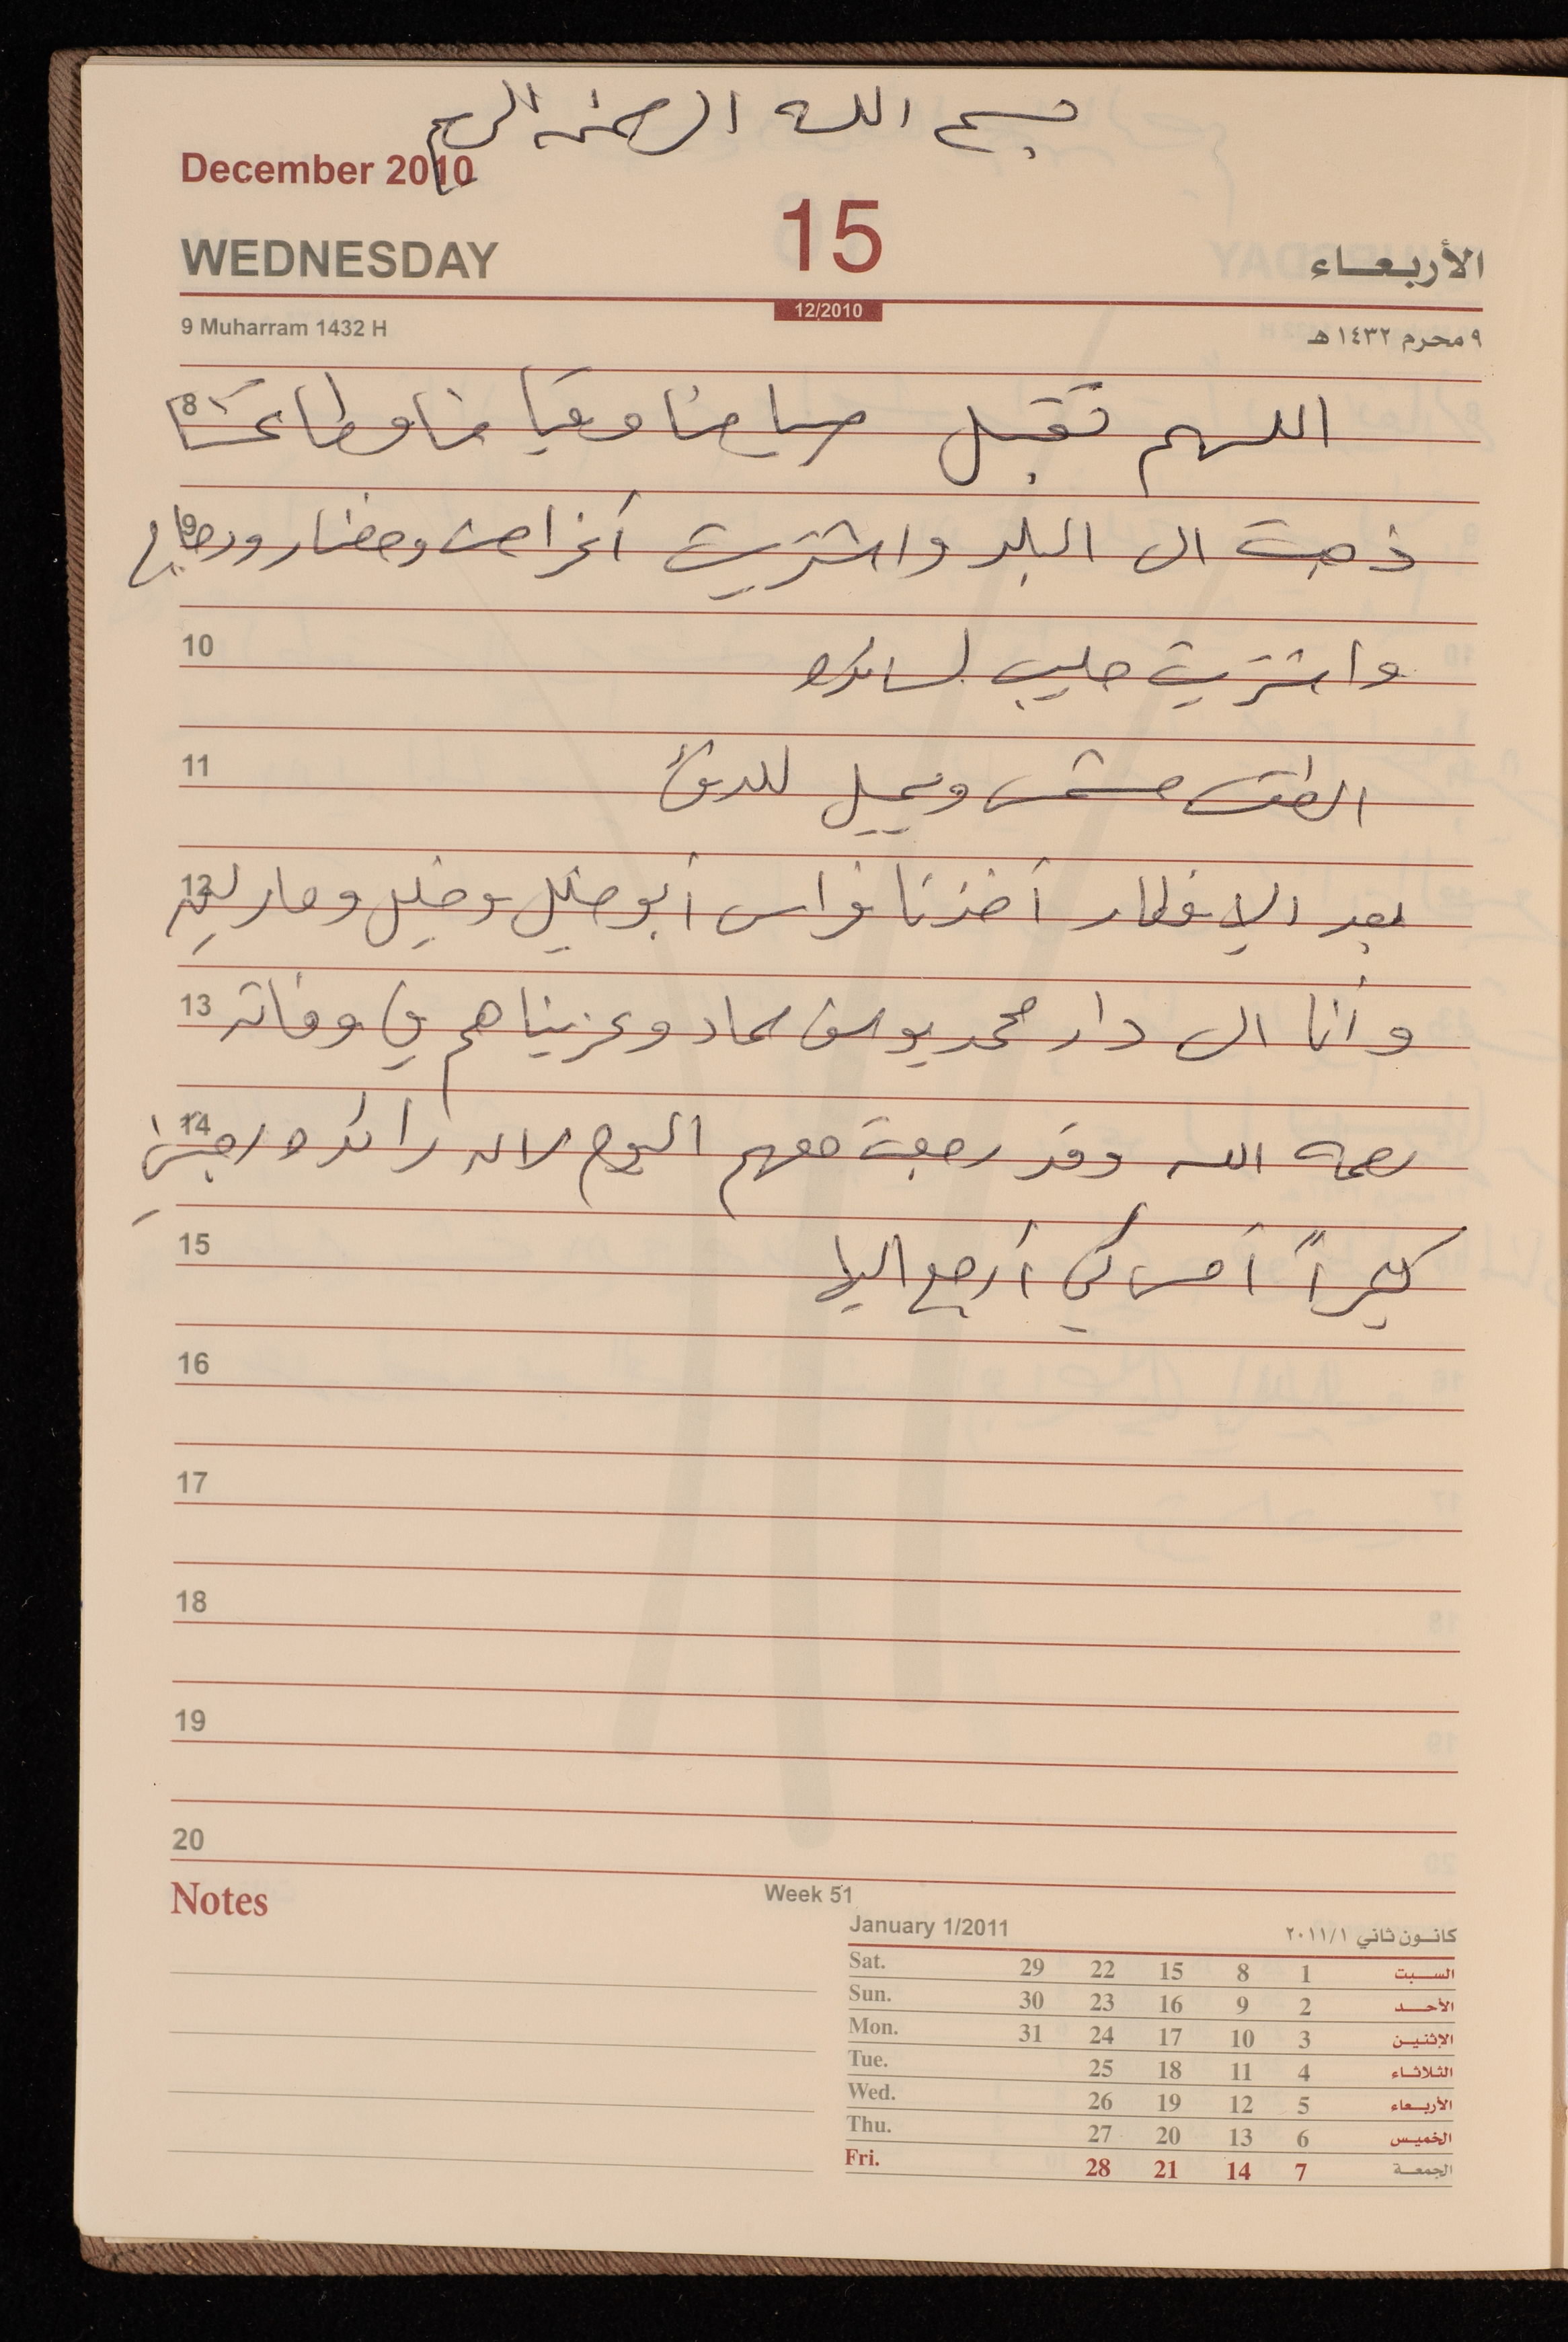 بسم الله الرحمن الرحيم
December 2010
15
WEDNESDAY
الأربعاء
12/2010
9 Muharram 1432 H
٩ محرم ١٤٣٢ هـ
8
اللهم تقبل صيامنا وقيامنا وطاعتنا
9
ذهبت الى البلد واشتريت أغراض وخضار ودجاج
10
واشتريت حليب لساندرا
11
الطقس مشمس ويميل للدفئ
12
بعد الإفطار أخذنا فراس أبو خليل وخليل ومارلين
13
وأنا الى دار محمد يوسف حماد وعزيناهم في وفاته
14
رحمه الله وقد رجعت معهم اليوم لانه رائده رجتني
15
كثيراً أمس كي أرجع اليها
16
17
18
19
20
Notes
Week 51
January 1/2011
كانون ثاني ٢٠١١/١
Sat. 29 22 15 8 1 السبت
Sun. 30 23 16 9 2 الأحد
Mon. 31 24 17 10 3 الإثنين
Tue. 25 18 11 4 الثلاثاء
Wed. 26 19 12 5 الأربعاء
Thu. 27 20 13 6 الخميس
Fri. 28 21 14 7 الجمعة